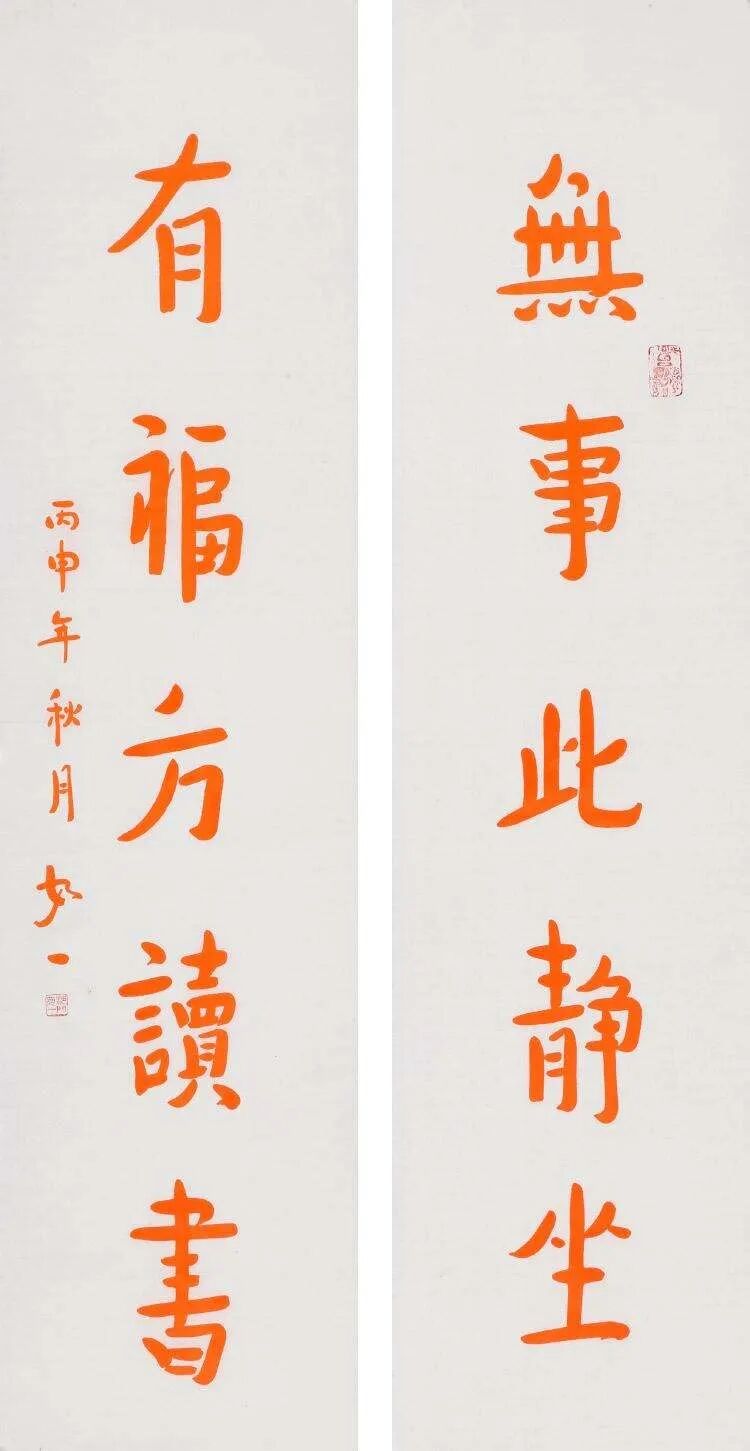 無事此静坐
有福方讀書
丙申年秋月如一